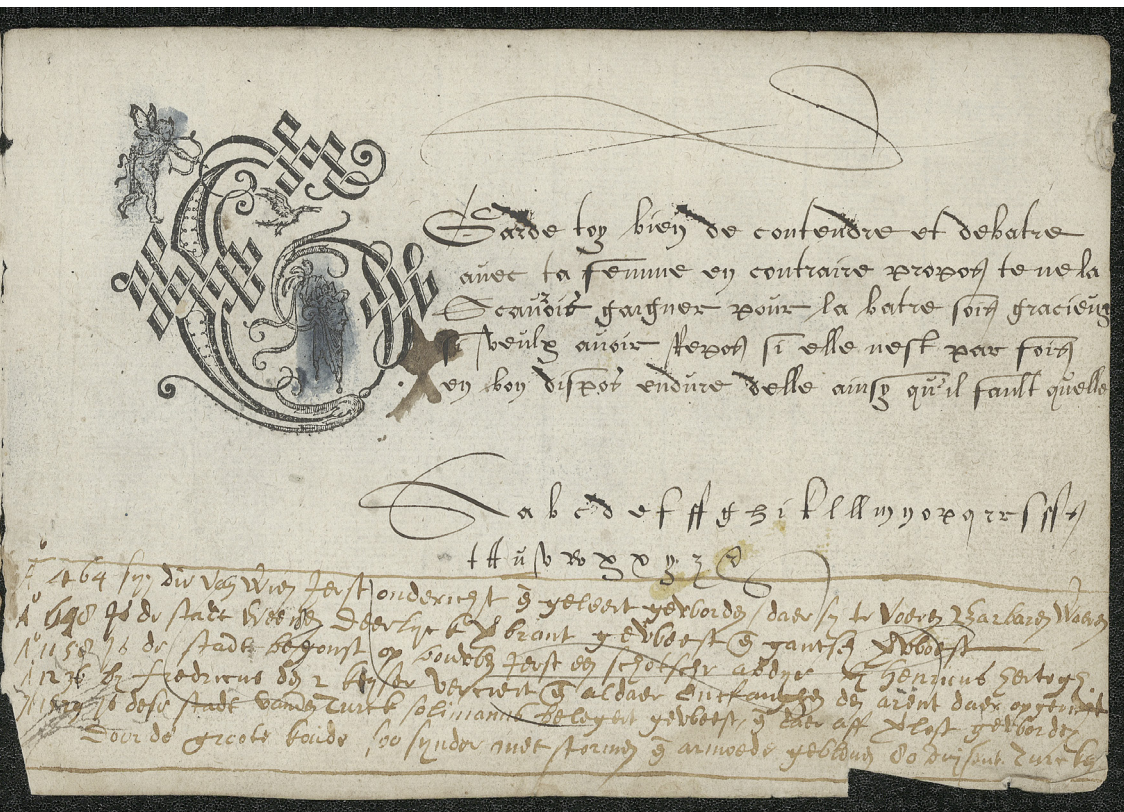 Garde toy bien de contendre et debatre
avec ta femme en contraire propos te ne la
Scavois gaigner pour la batre sois gracieux
si veulx avoir Repos si elle nest par fois
en bon dispos endure delle ainsy qu'il fault quelle
a b c d e f ff g h i k l ll m n o p q r r s ss s
t tt u v w x x y z &
A° 464 syn die van Wien Jerst ondericht en geleert geworden / daer sy te voeren Barbaren Waeren
A° 648 Is de stadt Weenen deerlyck brant geweest en gantsch Woest
A° 1158 is de stadt begonst op Jerst een schotscher abdye Henricus hertogh
A° 1236 by fredricus den 2 keyser verciert en aldaer den arent daer op
is dese stadt vanden Turck solimannus belegert geweest en daer aff verlost geworden
Door de groote koude soo synder met stormen en armoede gebleven 80 duisent Turcken